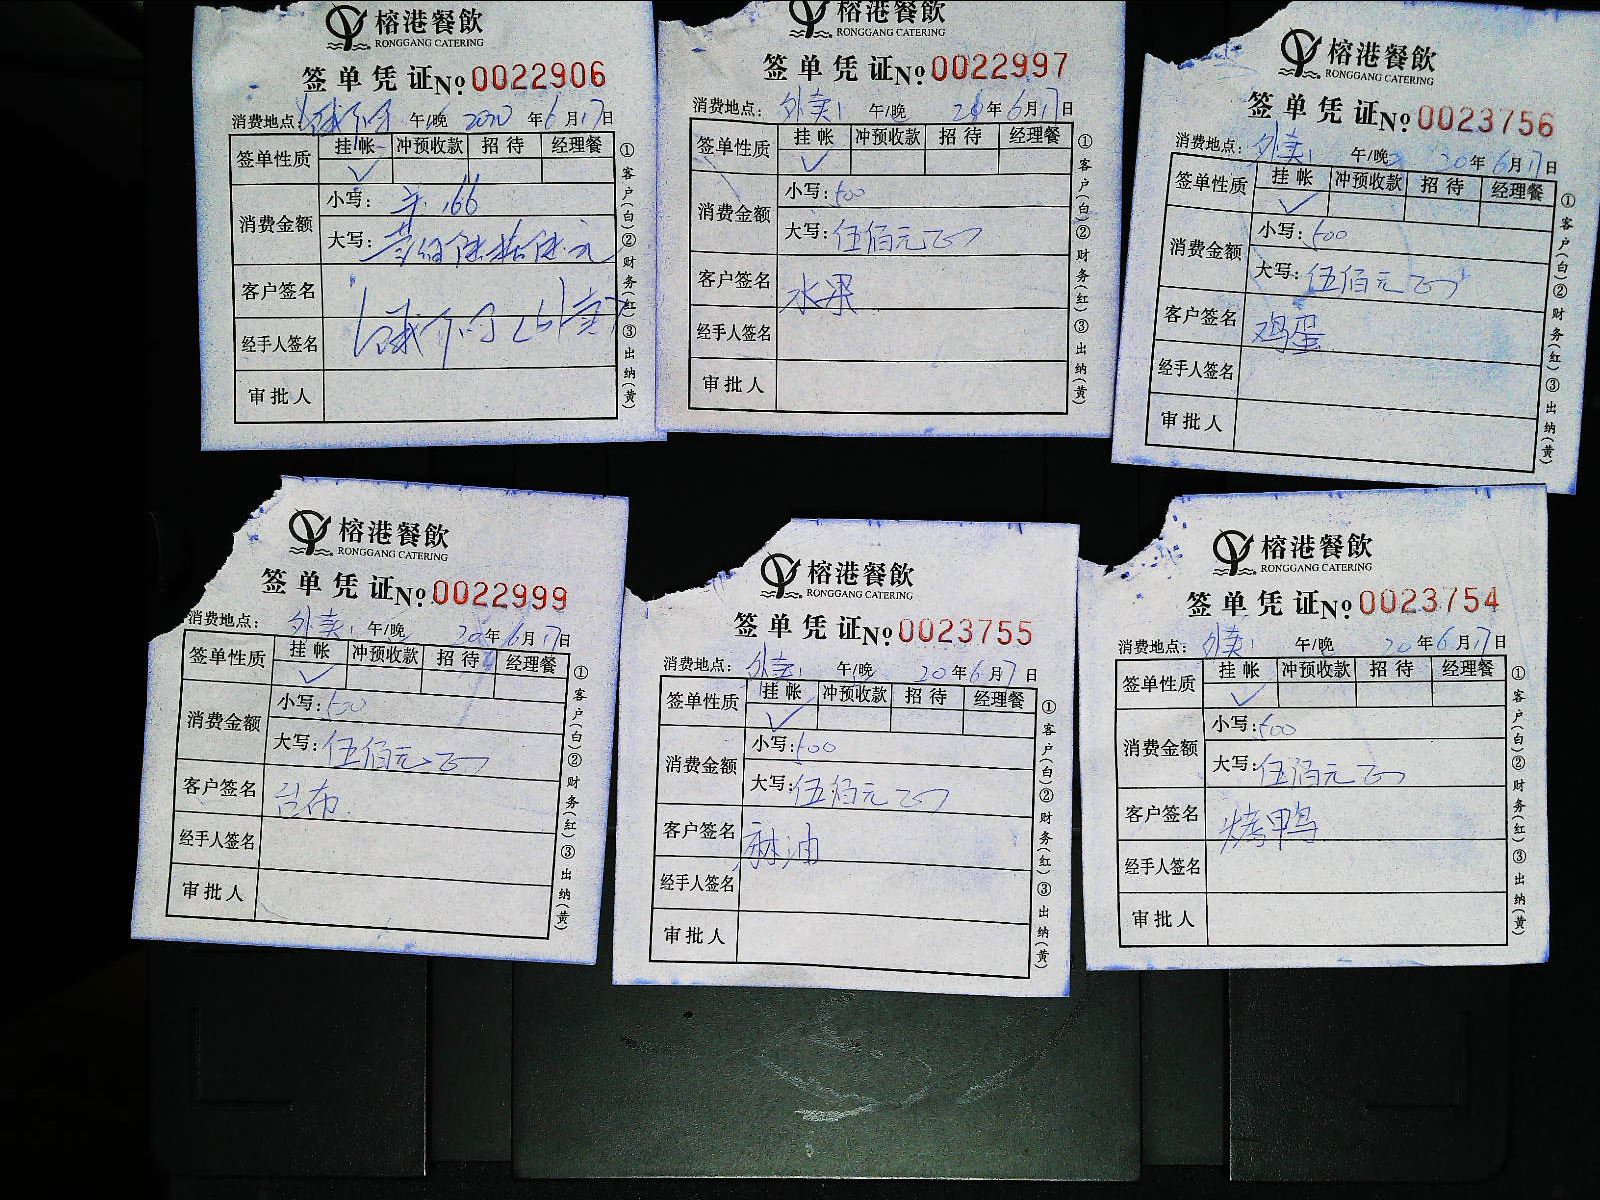 榕港餐飲
RONGGANG CATERING
签单凭证No.0022906
消费地点: 午/晚 2020年6月17日
签单性质 挂帐 冲预收款 招待 经理餐
✓
消费金额 小写: 166
大写: 壹佰陆拾陆元
客户签名
经手人签名
审批人
①客户(白)②财务(红)③出纳(黄)
榕港餐飲
RONGGANG CATERING
签单凭证No.0022997
消费地点: 外卖 午/晚 20年6月17日
签单性质 挂帐 冲预收款 招待 经理餐
✓
消费金额 小写: 500
大写: 伍佰元正
客户签名 水果
经手人签名
审批人
①客户(白)②财务(红)③出纳(黄)
榕港餐飲
RONGGANG CATERING
签单凭证No.0023756
消费地点: 外卖 午/晚 20年6月17日
签单性质 挂帐 冲预收款 招待 经理餐
✓
消费金额 小写: 500
大写: 伍佰元正
客户签名 鸡蛋
经手人签名
审批人
①客户(白)②财务(红)③出纳(黄)
榕港餐飲
RONGGANG CATERING
签单凭证No.0022999
消费地点: 外卖 午/晚 20年6月17日
签单性质 挂帐 冲预收款 招待 经理餐
✓
消费金额 小写: 500
大写: 伍佰元正
客户签名 台布
经手人签名
审批人
①客户(白)②财务(红)③出纳(黄)
榕港餐飲
RONGGANG CATERING
签单凭证No.0023755
消费地点: 外卖 午/晚 20年6月7日
签单性质 挂帐 冲预收款 招待 经理餐
✓
消费金额 小写: 500
大写: 伍佰元正
客户签名 麻油
经手人签名
审批人
①客户(白)②财务(红)③出纳(黄)
榕港餐飲
RONGGANG CATERING
签单凭证No.0023754
消费地点: 外卖 午/晚 20年6月17日
签单性质 挂帐 冲预收款 招待 经理餐
✓
消费金额 小写: 500
大写: 伍佰元正
客户签名 烤鸭
经手人签名
审批人
①客户(白)②财务(红)③出纳(黄)